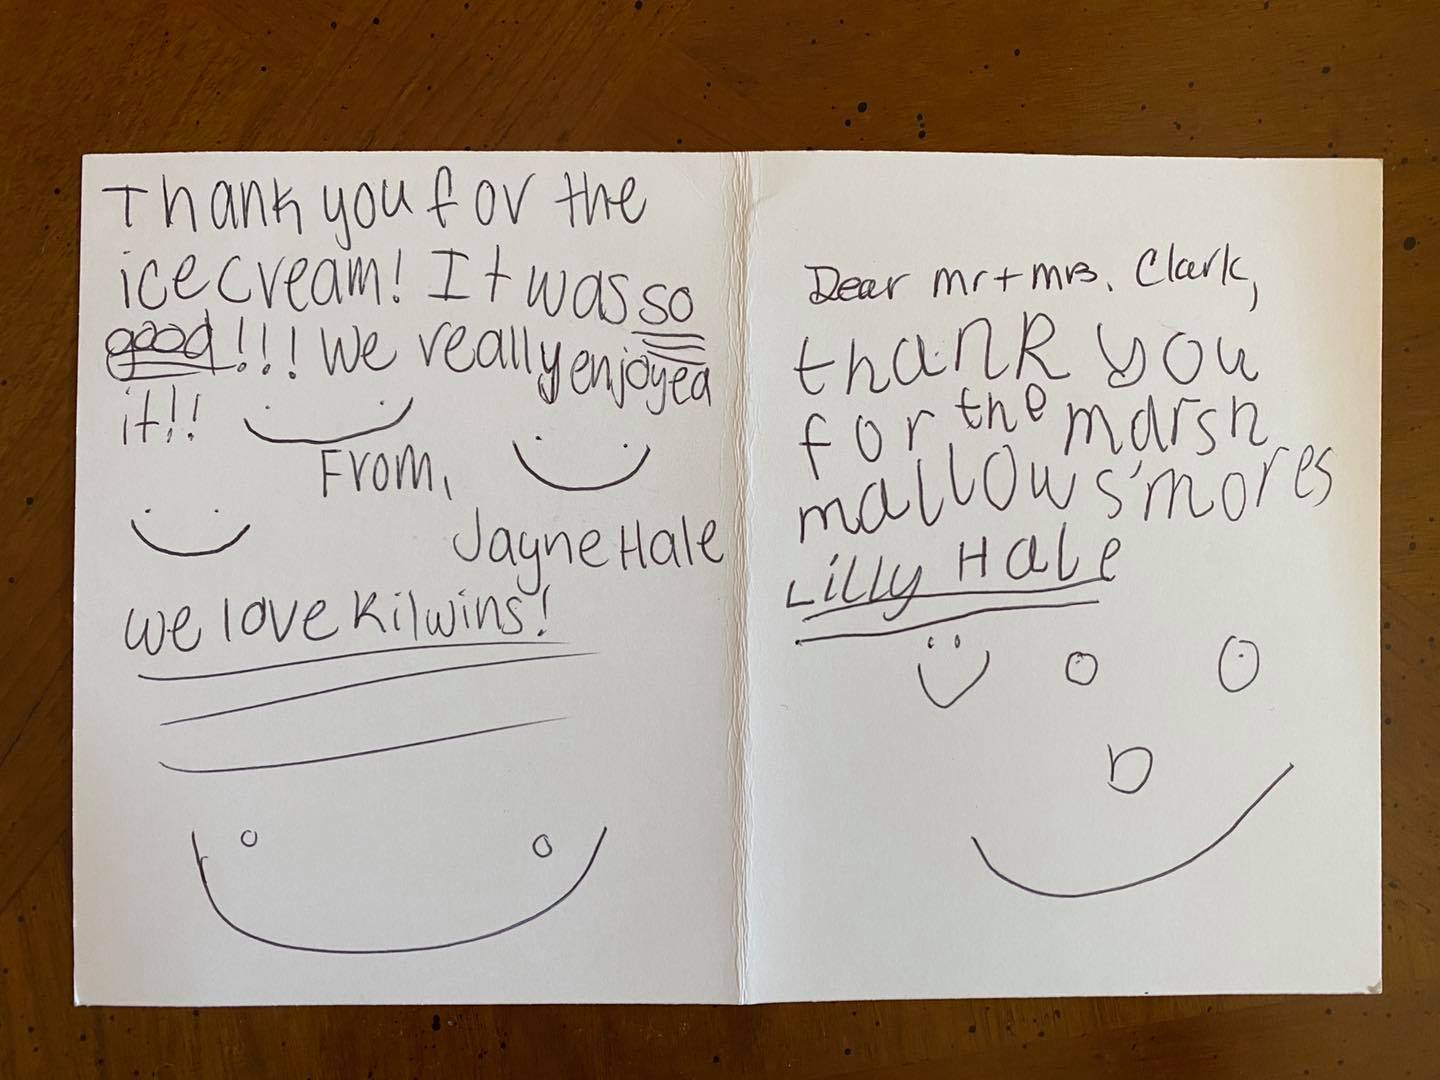 Thank you for the
ice cream! It was so
good!!! We really enjoyed
it!!
From,
Jayne Hale
we love Kilwins!
Dear mr + mrs. Clark,
thank you
for the marsh
mallow s'mores
Lilly Hale